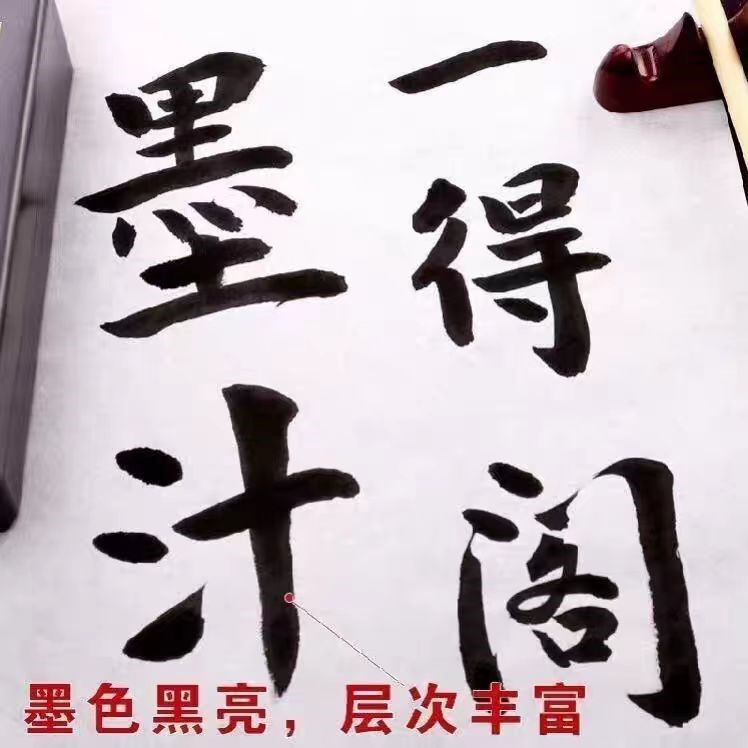 一得阁
墨汁
墨色黑亮，层次丰富